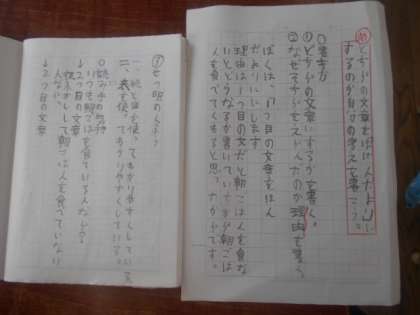 どちらの文章をほけんだよりに
するのか自分の考えを書こう。
○書き方
①どちらの文章にするかを書く。
②なぜそちらをえらんだのか理由を書く。
ぼくは、1つ目の文章をほけん
だよりにします。
理由は1つ目の文だと朝ごはんを食べな
いとどうなるか書いていて
朝ごはん
を食べてくると思ったからです。
せつ明のくふう
一、絵と図を使って、わかりやすくしている。
二、表を使って、わかりやすくしている。
○読み手の気持ち
いつも朝ごはんを食べている人なら？
↓2つ目の文章
朝ごはんを食べていない
人なら？
↓1つ目の文章